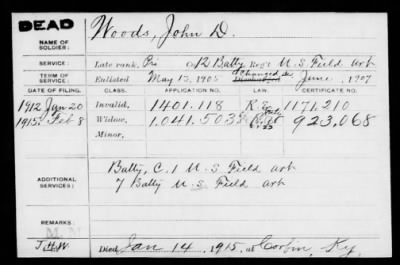 DEAD
NAME OF SOLDIER: Woods, John D.
SERVICE: Late rank, Pri Co 12 Batty Reg't U.S. Field Art
TERM OF SERVICE: Enlisted May 13, 1905 June, 1907
DATE OF FILING. CLASS. APPLICATION NO. LAW. CERTIFICATE NO.
1912 Jan 20 Invalid, 1401.118 1171,210
1915 Feb 8 Widow, 1.041.503 923,068
Minor,
ADDITIONAL SERVICES: Batty, C. 1 U.S Field Art
7 Batty U.S. Field Art
REMARKS:
Died Jan 14, 1915, at Corbin, Ky.